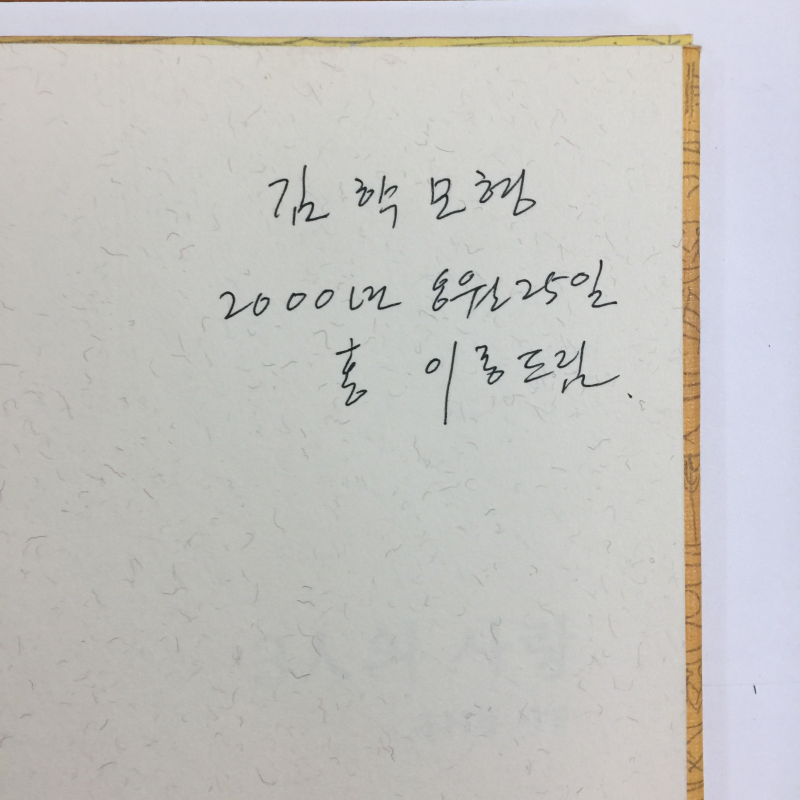 김 학 모 형
2000년 8월 25일
홍 이 릉 드림.